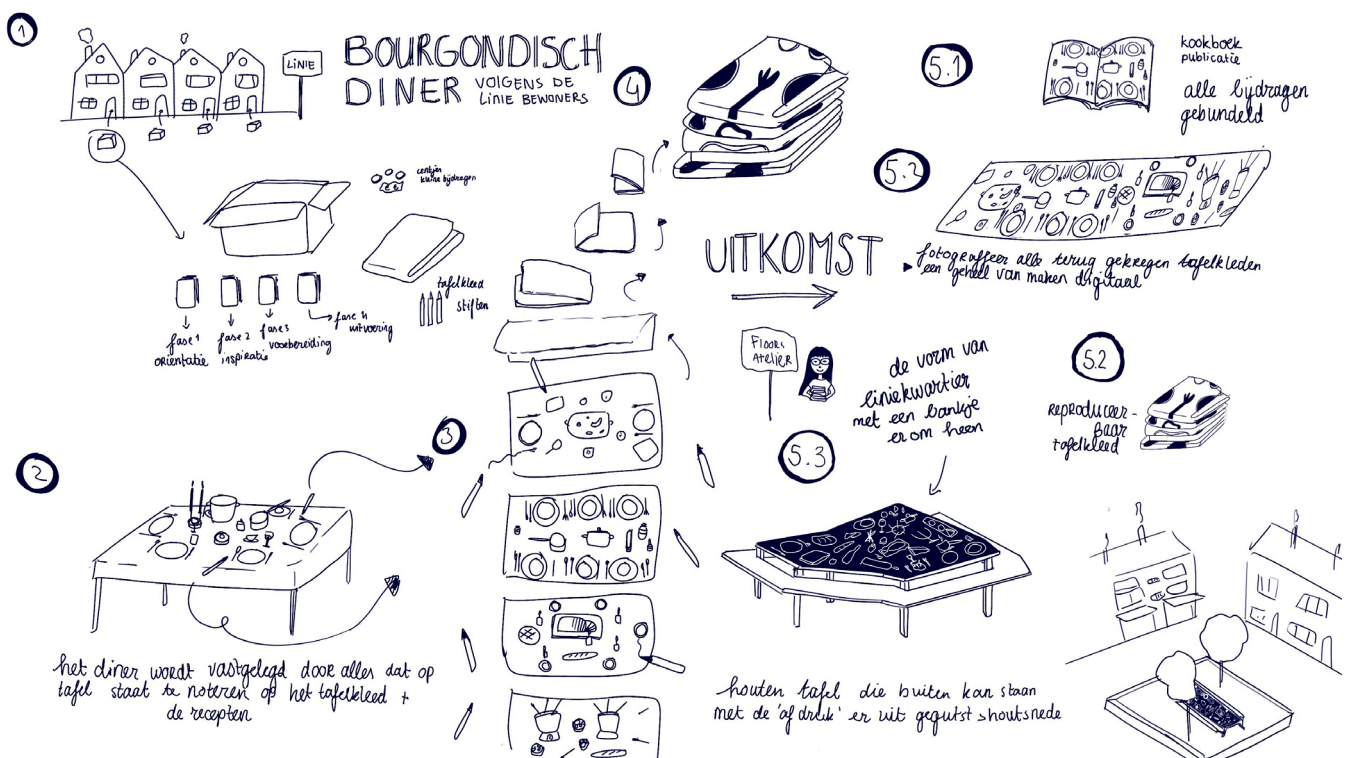 1
LINIE
BOURGONDISCH
DINER VOLGENS DE
LINIE BEWONERS
centjes
kleine bijdragen
tafelkleed
stiften
fase 1
orientatie
fase 2
inspiratie
fase 3
voorbereiding
fase 4
uitvoering
2
het diner wordt vastgelegd door alles dat op
tafel staat te noteren op het tafelkleed +
de recepten
3
4
UITKOMST
5.1
kookboek
publicatie
alle bijdragen
gebundeld
5.2
fotografeer alle terug gekregen tafelkleden
een geheel van maken digitaal
Floors
Atelier
de vorm van
liniekwartier
met een bankje
er om heen
5.2
REPRODUCEER-
BAAR
tafelkleed
5.3
houten tafel die buiten kan staan
met de 'afdruk' er uit gegutst > houtsnede